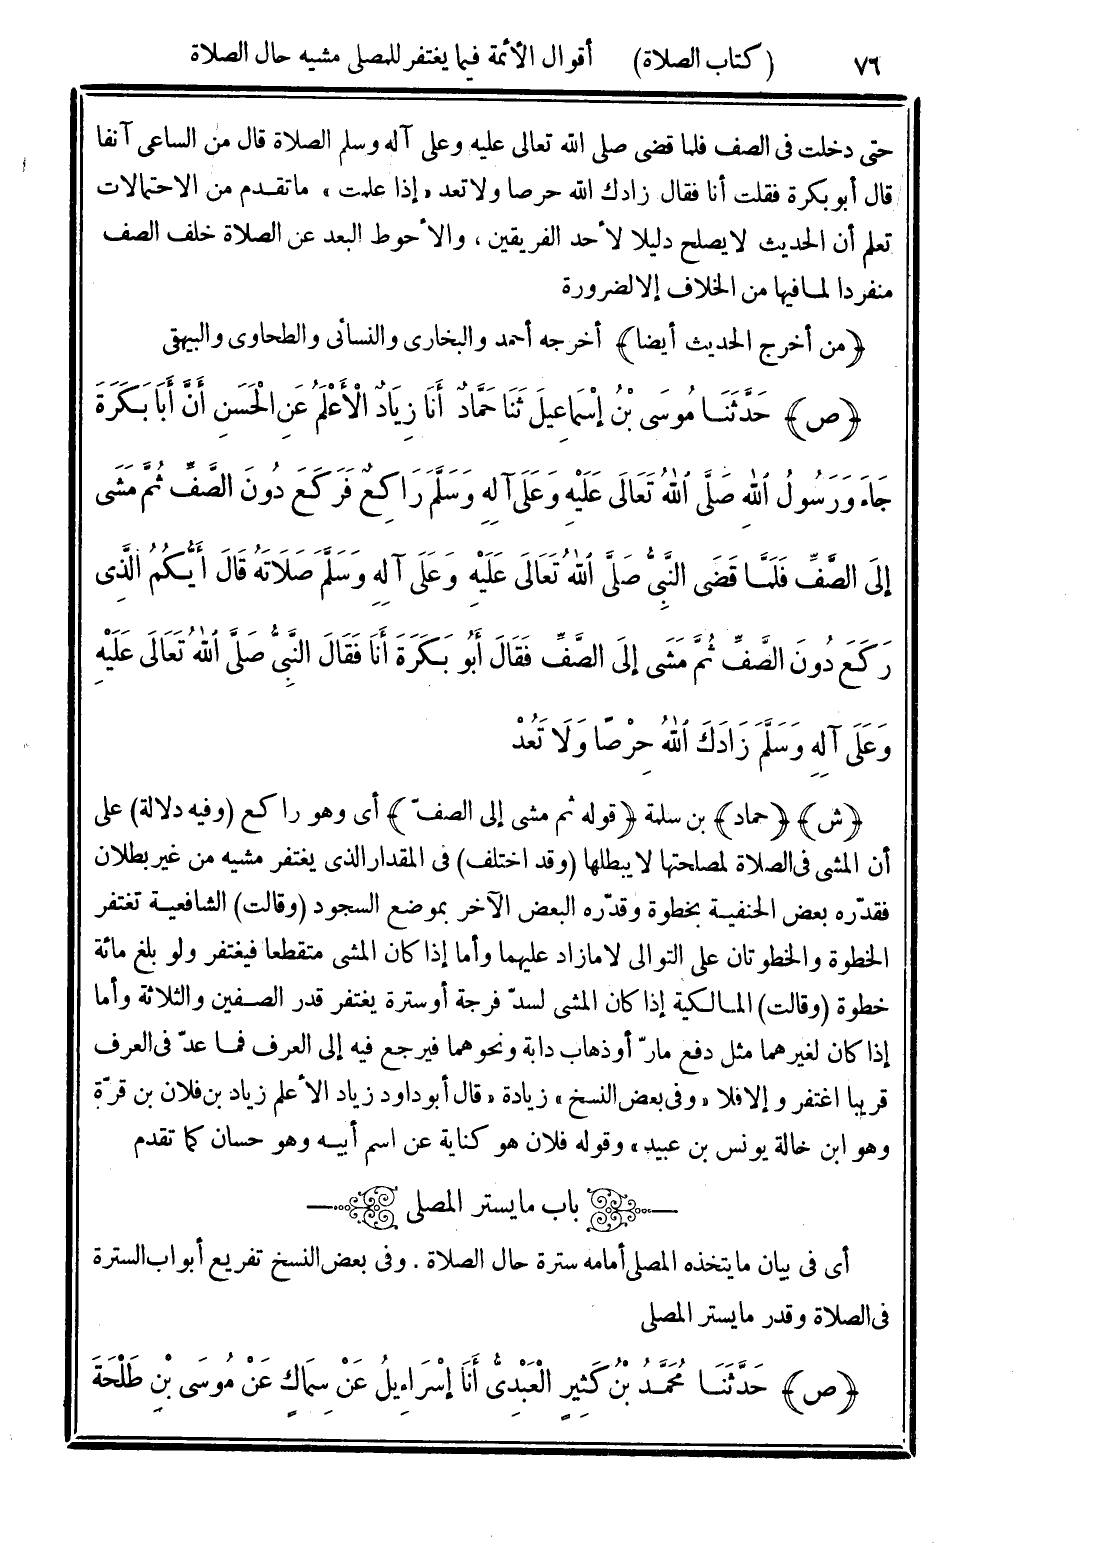 ٧٦ (كتاب الصلاة) أقوال الأئمة فيما يغتفر للمصلى مشيه حال الصلاة
حتى دخلت فى الصف فلما قضى صلى الله تعالى عليه وعلى آله وسلم الصلاة قال من الساعى آنفا
قال أبو بكرة فقلت أنا فقال زادك الله حرصا ولا تعد «إذا علمت» ما تقدم من الاحتمالات
تعلم أن الحديث لا يصلح دليلا لأحد الفريقين، والأحوط البعد عن الصلاة خلف الصف
منفردا لما فيها من الخلاف إلا لضرورة
﴿من أخرج الحديث أيضا﴾ أخرجه أحمد والبخارى والنسائى والطحاوى والبيهقى
﴿ص﴾ حَدَّثَنَا مُوسَى بْنُ إِسْمَاعِيلَ ثَنَا حَمَّادٌ أَنَا زِيَادٌ الْأَعْلَمُ عَنِ الْحَسَنِ أَنَّ أَبَا بَكَرَةَ
جَاءَ وَرَسُولُ اللهِ صَلَّى اللهُ تَعَالَى عَلَيْهِ وَعَلَى آلِهِ وَسَلَّمَ رَاكِعٌ فَرَكَعَ دُونَ الصَّفِّ ثُمَّ مَشَى
إِلَى الصَّفِّ فَلَمَّا قَضَى النَّبِىُّ صَلَّى اللهُ تَعَالَى عَلَيْهِ وَعَلَى آلِهِ وَسَلَّمَ صَلَاتَهُ قَالَ أَيُّكُمُ الَّذِى
رَكَعَ دُونَ الصَّفِّ ثُمَّ مَشَى إِلَى الصَّفِّ فَقَالَ أَبُو بَكَرَةَ أَنَا فَقَالَ النَّبِىُّ صَلَّى اللهُ تَعَالَى عَلَيْهِ
وَعَلَى آلِهِ وَسَلَّمَ زَادَكَ اللهُ حِرْصًا وَلَا تَعُدْ
﴿ش﴾ ﴿حماد﴾ بن سلمة ﴿قوله ثم مشى إلى الصفّ﴾ أى وهو راكع (وفيه دلالة) على
أن المشى فى الصلاة لمصلحتها لا يبطلها (وقد اختلف) فى المقدار الذى يغتفر مشيه من غير بطلان
فقدّره بعض الحنفية بخطوة وقدّره البعض الآخر بموضع السجود (وقالت) الشافعية تغتفر
الخطوة والخطوتان على التوالى لا مازاد عليهما وأما إذا كان المشى متقطعا فيغتفر ولو بلغ مائة
خطوة (وقالت) المالكية إذا كان المشى لسدّ فرجة أو سترة يغتفر قدر الصفين والثلاثة وأما
إذا كان لغيرهما مثل دفع مارّ أو ذهاب دابة ونحوهما فيرجع فيه إلى العرف فما عدّ فى العرف
قريبا اغتفر وإلا فلا «وفى بعض النسخ» زيادة «قال أبو داود زياد الأعلم زياد بن فلان بن قرّة
وهو ابن خالة يونس بن عبيد» وقوله فلان هو كناية عن اسم أبيه وهو حسان كما تقدم
باب ما يستر المصلى
أى فى بيان ما يتخذه المصلى أمامه سترة حال الصلاة . وفى بعض النسخ تفريع أبواب السترة
فى الصلاة وقدر ما يستر المصلى
﴿ص﴾ حَدَّثَنَا مُحَمَّدُ بْنُ كَثِيرٍ الْعَبْدِىُّ أَنَا إِسْرَاءِيلُ عَنْ سِمَاكٍ عَنْ مُوسَى بْنِ طَلْحَةَ